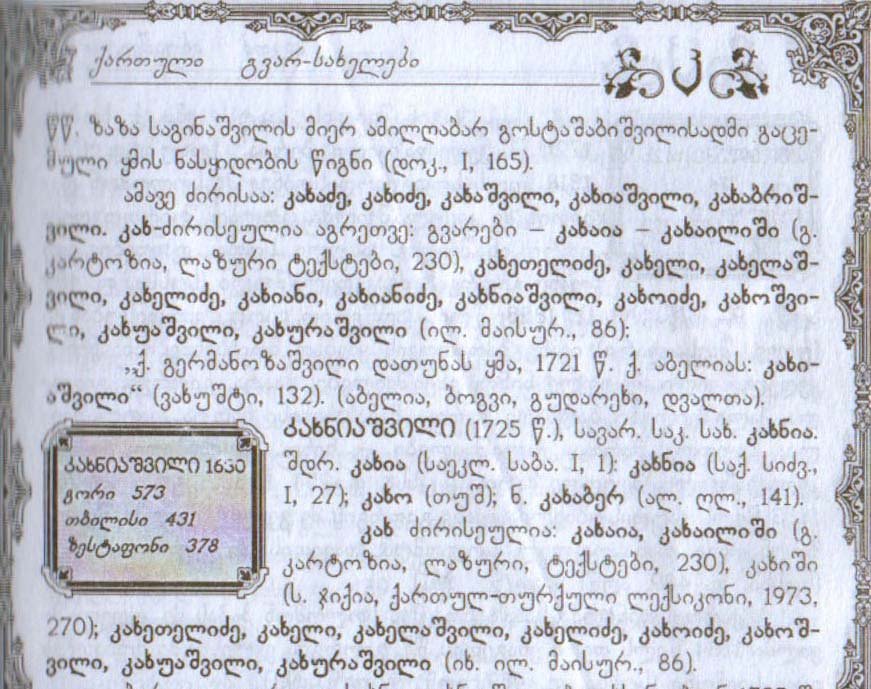 ქართული გვარ-სახელები
კ
წწ. ზაზა საგინაშვილის მიერ ამილღაბარ გოსტაშაბიშვილისადმი გაცე-
მული ყმის ნასყიდობის წიგნი (დოკ., I, 165).
ამავე ძირისაა: კახაძე, კახიძე, კახაშვილი, კახიაშვილი, კახაბრიშ-
ვილი. კახ-ძირისეულია აგრეთვე: გვარები – კახაია – კახაილიში (გ.
კარტოზია, ლაზური ტექსტები, 230), კახეთელიძე, კახელი, კახელაშ-
ვილი, კახელიძე, კახიანი, კახიანიძე, კახნიაშვილი, კახოიძე, კახოშვი-
ლი, კახუაშვილი, კახურაშვილი (ილ. მაისურ., 86):
„ქ. გერმანოზაშვილი დათუნას ყმა, 1721 წ. ქ. აბელიას: კახი-
აშვილი“ (ვახუშტი, 132). (აბელია, ბოგვი, გუდარეხი, დვალთა).
კახნიაშვილი (1725 წ.), სავარ. საკ. სახ. კახნია.
შდრ. კახია (საეკლ. საბა. I, 1): კახნია (საქ. სიძვ.,
I, 27); კახო (თუშ); ნ. კახაბერ (ალ. ღლ., 141).
კახ ძირისეულია: კახაია, კახაილიში (გ.
კარტოზია, ლაზური, ტექსტები, 230), კახიში
(ს. ჯიქია, ქართულ-თურქული ლექსიკონი, 1973,
270); კახეთელიძე, კახელი, კახელაშვილი, კახელიძე, კახოიძე, კახოშ-
ვილი, კახუაშვილი, კახურაშვილი (იხ. ილ. მაისურ., 86).
კახნიაშვილი 1630
გორი 573
თბილისი 431
ზესტაფონი 378